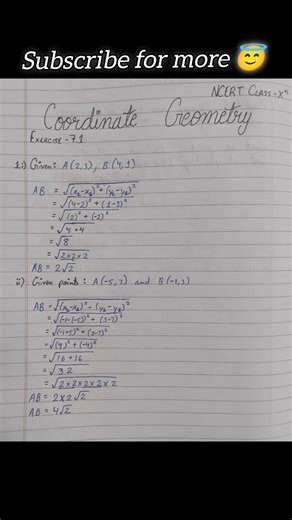 Subscribe for more 😇
NCERT CLASS-Xᵗʰ
Coordinate Geometry
EXERCISE-7.1
1.i) Given: A(2,3), B(4,1)
AB = √(x₂-x₁)²+(y₂-y₁)²
= √(4-2)²+(1-3)²
= √(2)²+(-2)²
= √4+4
= √8
= √2×2×2
AB = 2√2
ii) Given points: A(-5,7) and B(-1,3)
AB = √(x₂-x₁)²+(y₂-y₁)²
= √(-1-(-5))²+(3-7)²
= √(-1+5)²+(3-7)²
= √(4)²+(-4)²
= √16+16
= √32
= √2×2×2×2×2
AB = 2×2√2
AB = 4√2